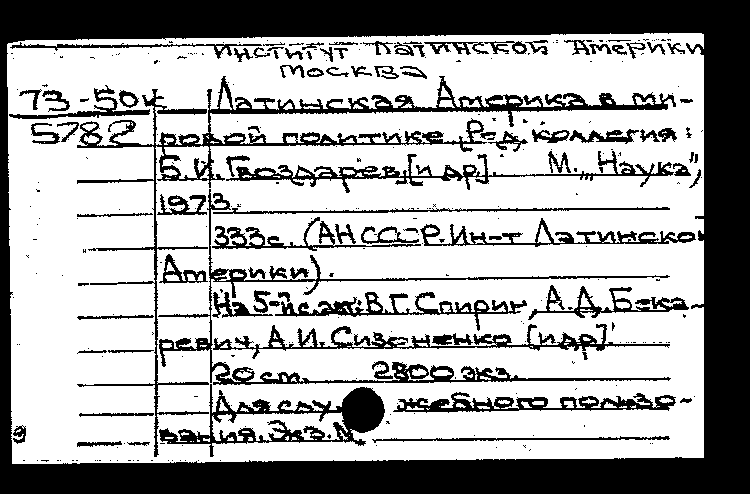 Институт Латинской Америки
Москва
73-50к Латинская Америка в ми-
5782 ровой политике. [Ред. коллегия:
Б.И. Гвоздарев, [и др]. М., „Наука",
1973.
333с. (АН СССР. Ин-т Латинской
Америки).
На 5-й с. авт: В.Г. Спирин, А.Д. Бека-
ревич, А.И. Сизоненко [и др]
20 см. 2800 экз.
Для служебного пользо-
вания. Экз. N